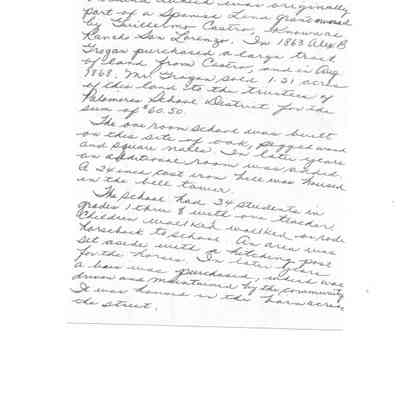 which was originally
part of a Spanish Land Grant owned
by Guillermo Castro, known as
Ranch San Lorenzo. In 1863 Alex B
Grogan purchased a large track
of land from Castro, and in Aug
1868. Mr. Grogan sold 1.31 acres
of this land to the trustees of
Palomares School District for the
sum of $60.50.
The one room school was built
on this site of oak, pegged wood
and square nails. In later years
an additional room was added.
A 24 inch cast iron bell was housed
in the bell tower.
The school had 34 students in
grades 1 thru 8 with one teacher.
Children walked or rode
horseback to school. An area was
set aside with a hitching post
for the horses. In later years
a bus was purchased, which was
driven and maintained by the community
It was housed in the barn across
the street.